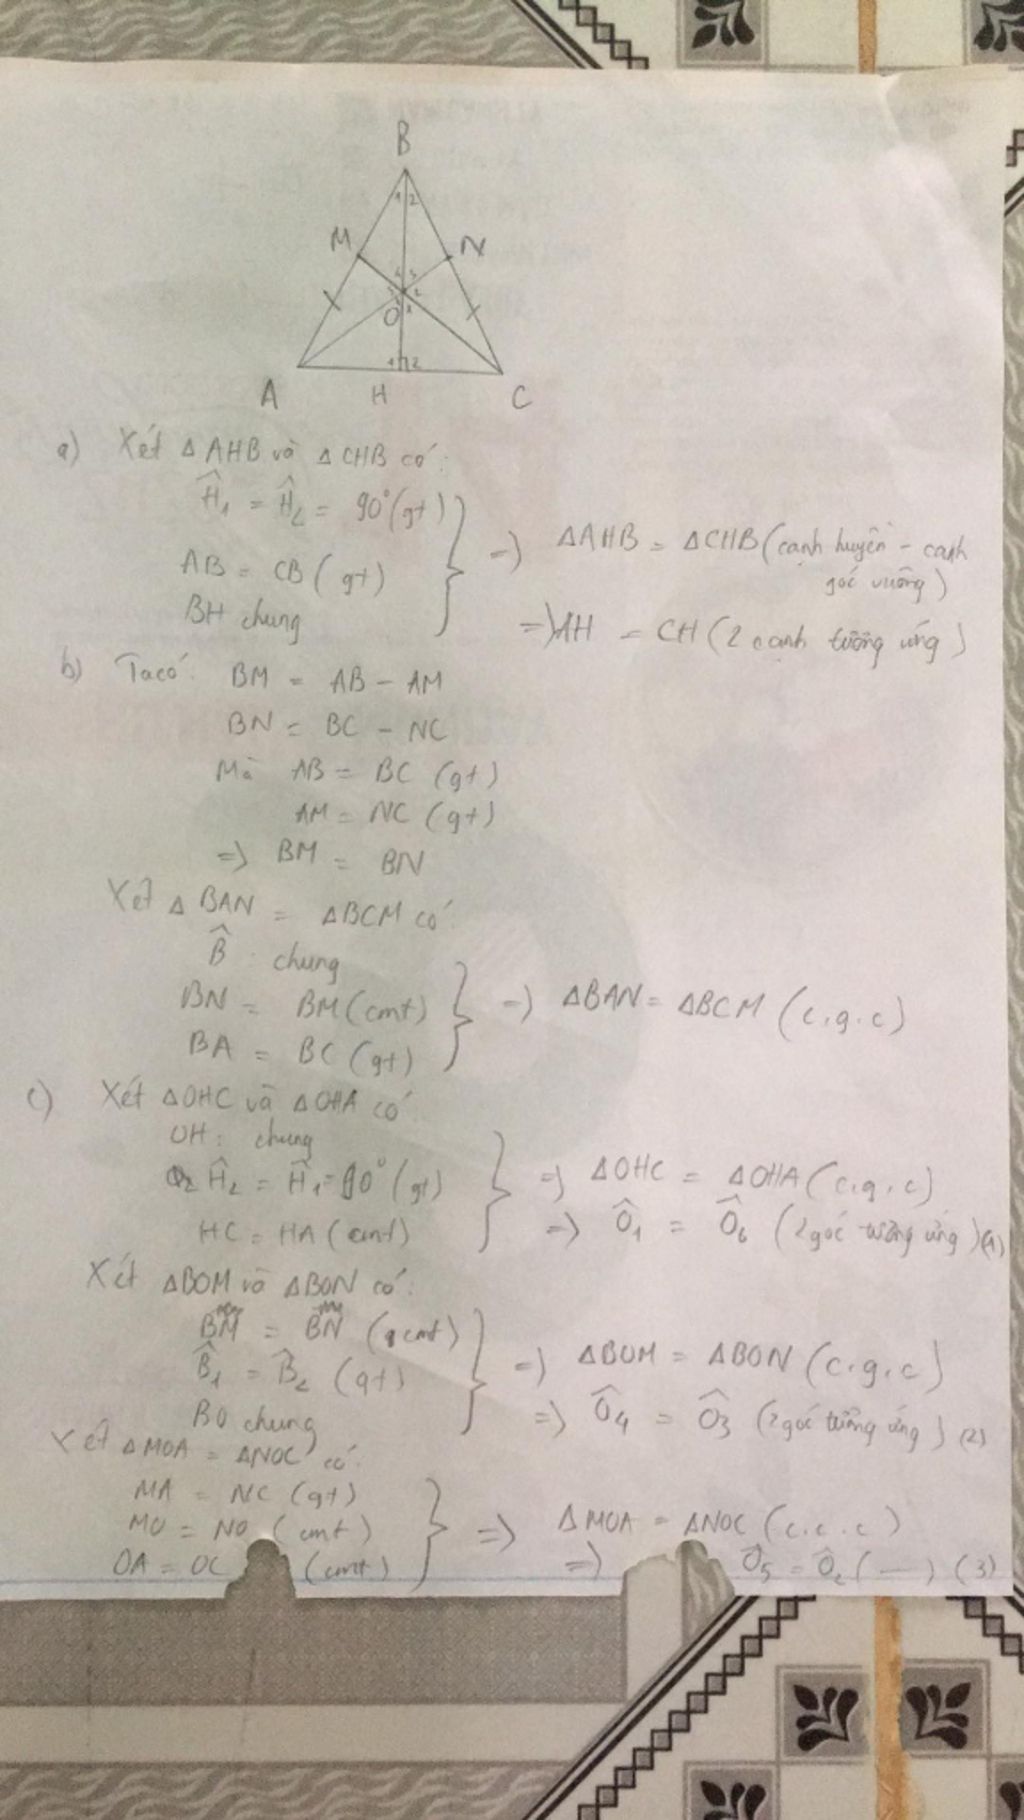 B
M
N
1 2
4 3
5 2
6 1
O
1 2
A
H
C
a) Xét Δ AHB và Δ CHB có:
Ĥ₁ = Ĥ₂ = 90° (gt)
AB = CB (gt)
BH chung
=> ΔAHB = ΔCHB (cạnh huyền - cạnh
góc vuông)
=> AH = CH (2 cạnh tương ứng)
b) Ta có: BM = AB - AM
BN = BC - NC
Mà AB = BC (gt)
AM = NC (gt)
=> BM = BN
Xét Δ BAN = ΔBCM có
B̂ : chung
BN = BM (cmt)
BA = BC (gt)
=> ΔBAN = ΔBCM (c.g.c)
c) Xét ΔOHC và ΔOHA có
OH : chung
Ĥ₂ = Ĥ₁ = 90° (gt)
HC = HA (cmt)
=> ΔOHC = ΔOHA (c.g.c)
=> Ô₁ = Ô₆ (2 góc tương ứng) (1)
Xét ΔBOM và ΔBON có:
BM = BN (cmt)
B̂₁ = B̂₂ (gt)
BO chung
=> ΔBOM = ΔBON (c.g.c)
=> Ô₄ = Ô₃ (2 góc tương ứng) (2)
Xét ΔMOA = ΔNOC có:
MA = NC (gt)
MO = NO (cmt)
OA = OC (cmt)
=> ΔMOA = ΔNOC (c.c.c)
=> Ô₅ = Ô₂ (—) (3)